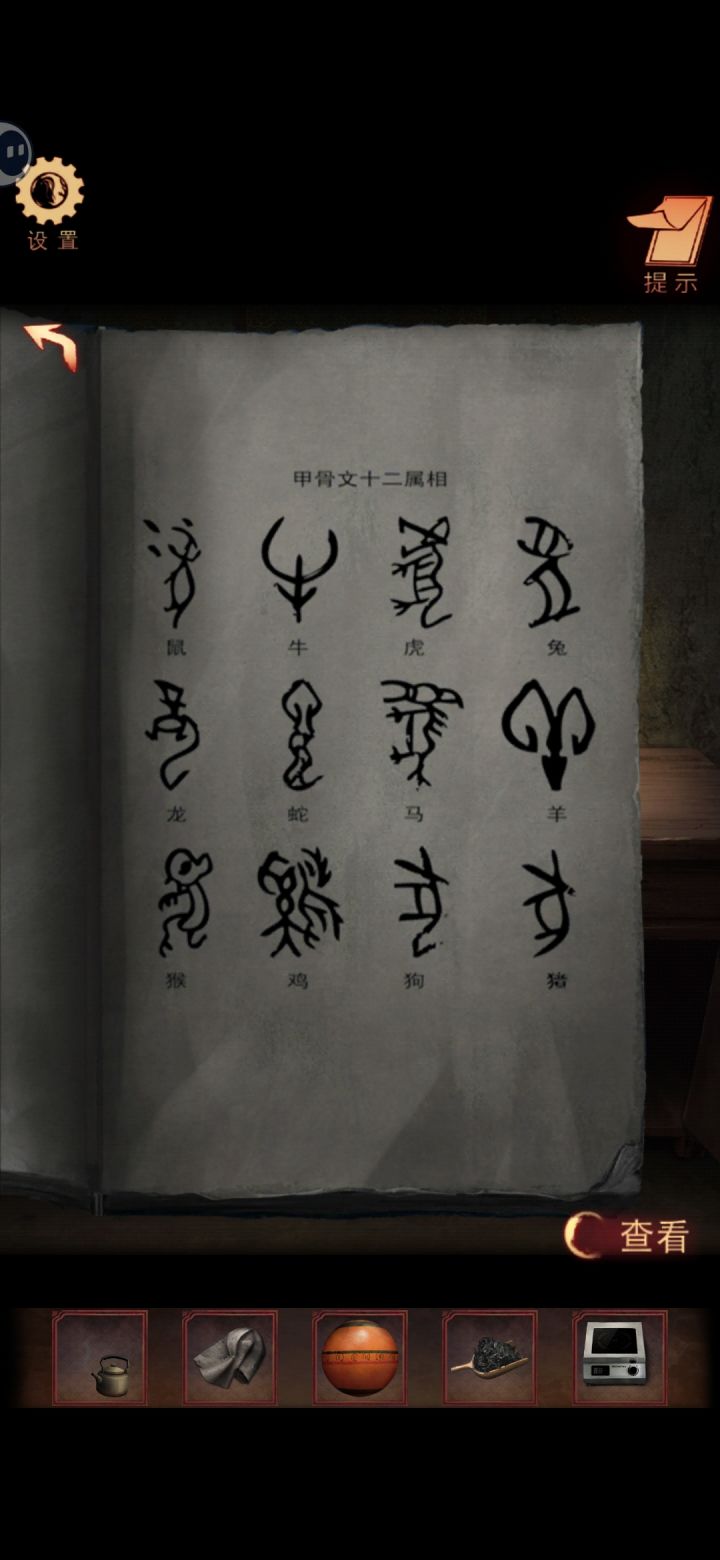 设置
提示
甲骨文十二属相
鼠 牛 虎 兔
龙 蛇 马 羊
猴 鸡 狗 猪
查看